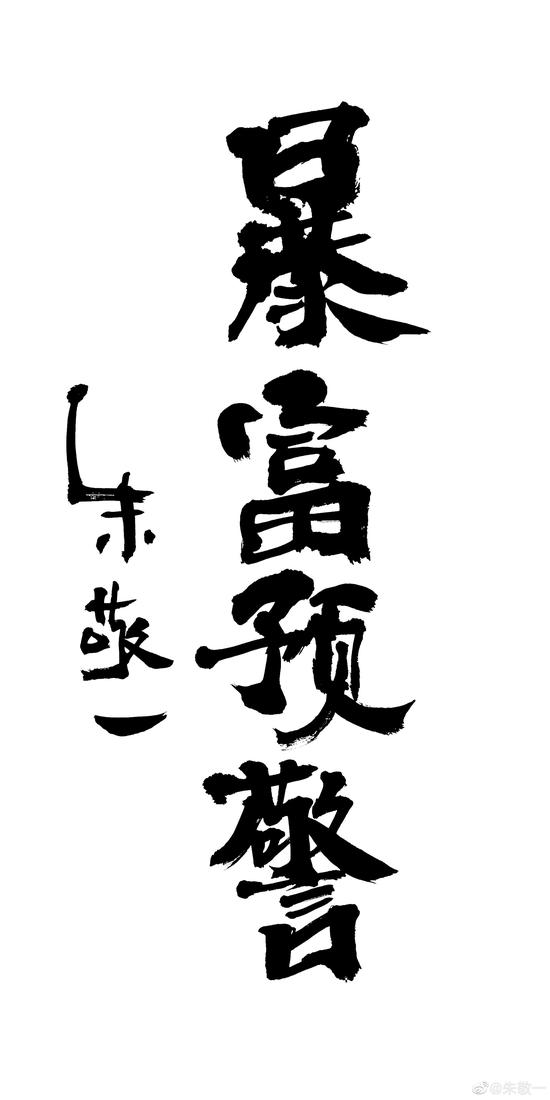 暴富预警
朱敬一
@朱敬一